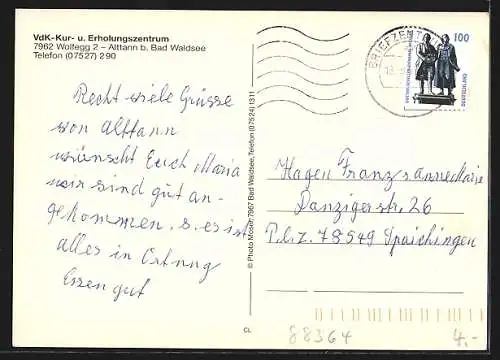 VdK-Kur- u. Erholungszentrum
7962 Wolfegg 2 – Alttann b. Bad Waldsee
Telefon (07527) 290
Recht viele Grüsse
von Alttann
wünscht Euch Maria
wir sind gut an-
gekommen, s. es ist
alles in Ortnug
Essen gut
© Photo Moser, 7967 Bad Waldsee, Telefon (07524) 1311
BRIEFZENTRUM
100
DEUTSCHLAND
Hagen Franz u Annemarie
Danzigerstr. 26
P.l.z. 78549 Spaichingen
CL
88364
4.-